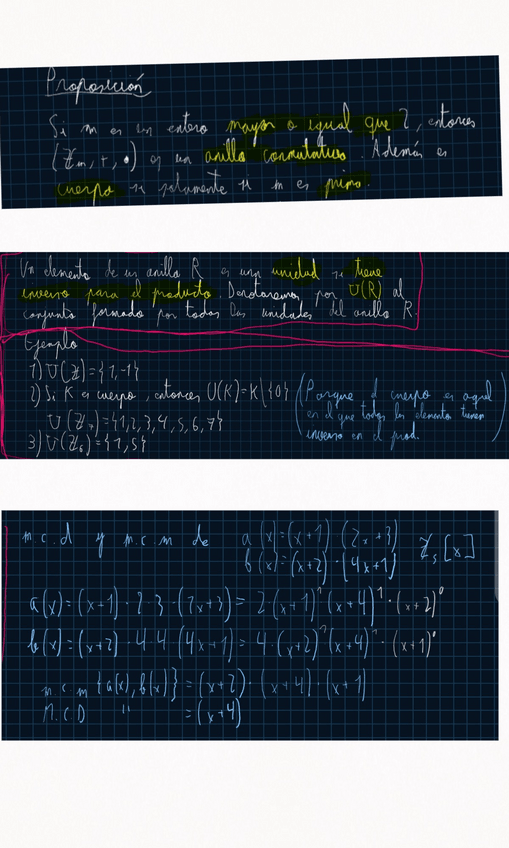 Proposición
Si m es un entero mayor o igual que 2, entonces
(ℤm, +, •) es un anillo conmutativo. Además es
cuerpo si solamente si m es primo.
Un elemento de un anillo R es una unidad si tiene
inverso para el producto. Denotaremos por U(R) al
conjunto formado por todas las unidades del anillo R.
Ejemplo
1) U(ℤ)={1,-1}
2) Si K es cuerpo, entonces U(K)=K\{0}
(Porque el cuerpo es aquel
en el que todos los elementos tienen
inverso en el prod.)
U(ℤ₇)={1,2,3,4,5,6,7}
3) U(ℤ₆)={1,5}
m.c.d y m.c.m de a(x)=(x+1)·(2x+3)
b(x)=(x+2)·(4x+1) ℤ₅[x]
a(x)=(x+1)·2·3·(2x+3)=2·(x+1)¹(x+4)¹·(x+2)⁰
b(x)=(x+2)·4·4(4x+1)=4·(x+2)¹(x+4)¹·(x+1)⁰
m.c.m {a(x),b(x)}=(x+2)·(x+4)·(x+1)
M.C.D " =(x+4)